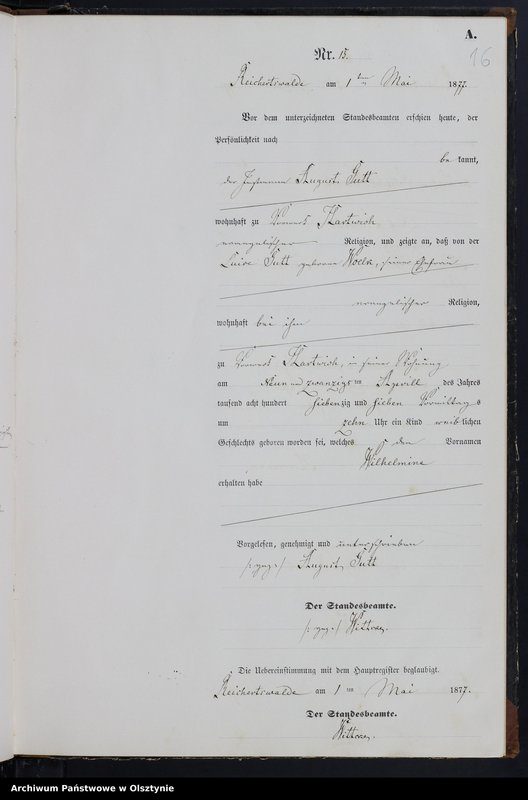 A.
16
Nr. 15.
Reichertswalde am 1 ten Mai 1877.
Vor dem unterzeichneten Standesbeamten erschien heute, der
Persönlichkeit nach
be kannt,
der Instmann August Gutt
wohnhaft zu Vorwerk Hartwich
evangelischer Religion, und zeigte an, daß von der
Luise Gutt geborene Woelk, seiner Ehefrau
evangelischer Religion,
wohnhaft bei ihm
zu Vorwerk Hartwich, in seiner Wohnung
am neun und zwanzigs ten April des Jahres
tausend acht hundert sieben zig und sieben Vormittag s
um zehn Uhr ein Kind weib lichen
Geschlechts geboren worden sei, welches den Vornamen
Wilhelmine
erhalten habe
Vorgelesen, genehmigt und unterschrieben
/: gez: / August Gutt
Der Standesbeamte.
/: gez: /
Die Uebereinstimmung mit dem Hauptregister beglaubigt.
Reichertswalde am 1 ten Mai 1877.
Der Standesbeamte.
Archiwum Państwowe w Olsztynie